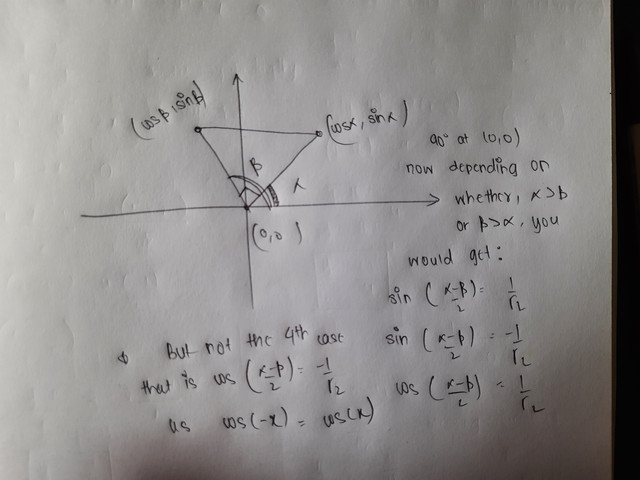 (cosβ, sinβ)
(cosα, sinα)
β
α
(0,0)
90° at (0,0)
now depending on
whether, α>β
or β>α, you
would get:
sin (α-β/2) = 1/√2
sin (α-β/2) = -1/√2
cos (α-β/2) = 1/√2
But not the 4th case
that is cos (α-β/2) = -1/√2
as cos(-x) = cos(x)